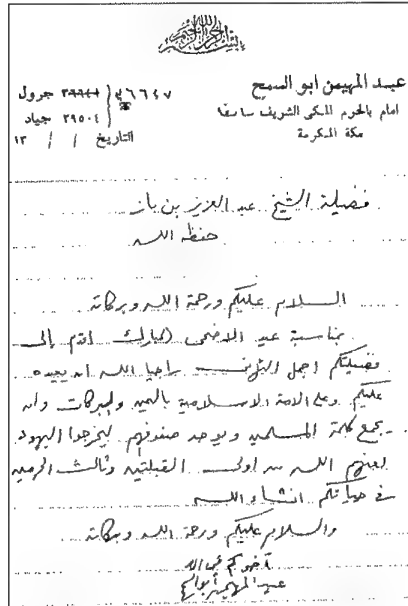 بسم الله الرحمن الرحيم
عبد المهيمن ابو السمح
امام بالحرم المكى الشريف سابقا
مكة المكرمة
٣٩٦٤٤ جرول
٢٩٥٠٤ جياد
التاريخ / / ١٣
فضيلة الشيخ عبد العزيز بن باز
حفظه الله
السلام عليكم ورحمة الله وبركاته
بمناسبة عيد الاضحى المبارك اقدم إلى
فضيلتكم اجمل التهانى راجيا الله ان يعيده
عليكم وعلى الامة الاسلامية باليمن والبركات وان
يجمع كلمة المسلمين ويوحد صفوفهم ليخرجوا اليهود
لعنهم الله من اولى القبلتين وثالث الحرمين
فى حياتكم انشاء الله
والسلام عليكم ورحمة الله وبركاته
اخوكم فى الله
عبد المهيمن أبو السمح